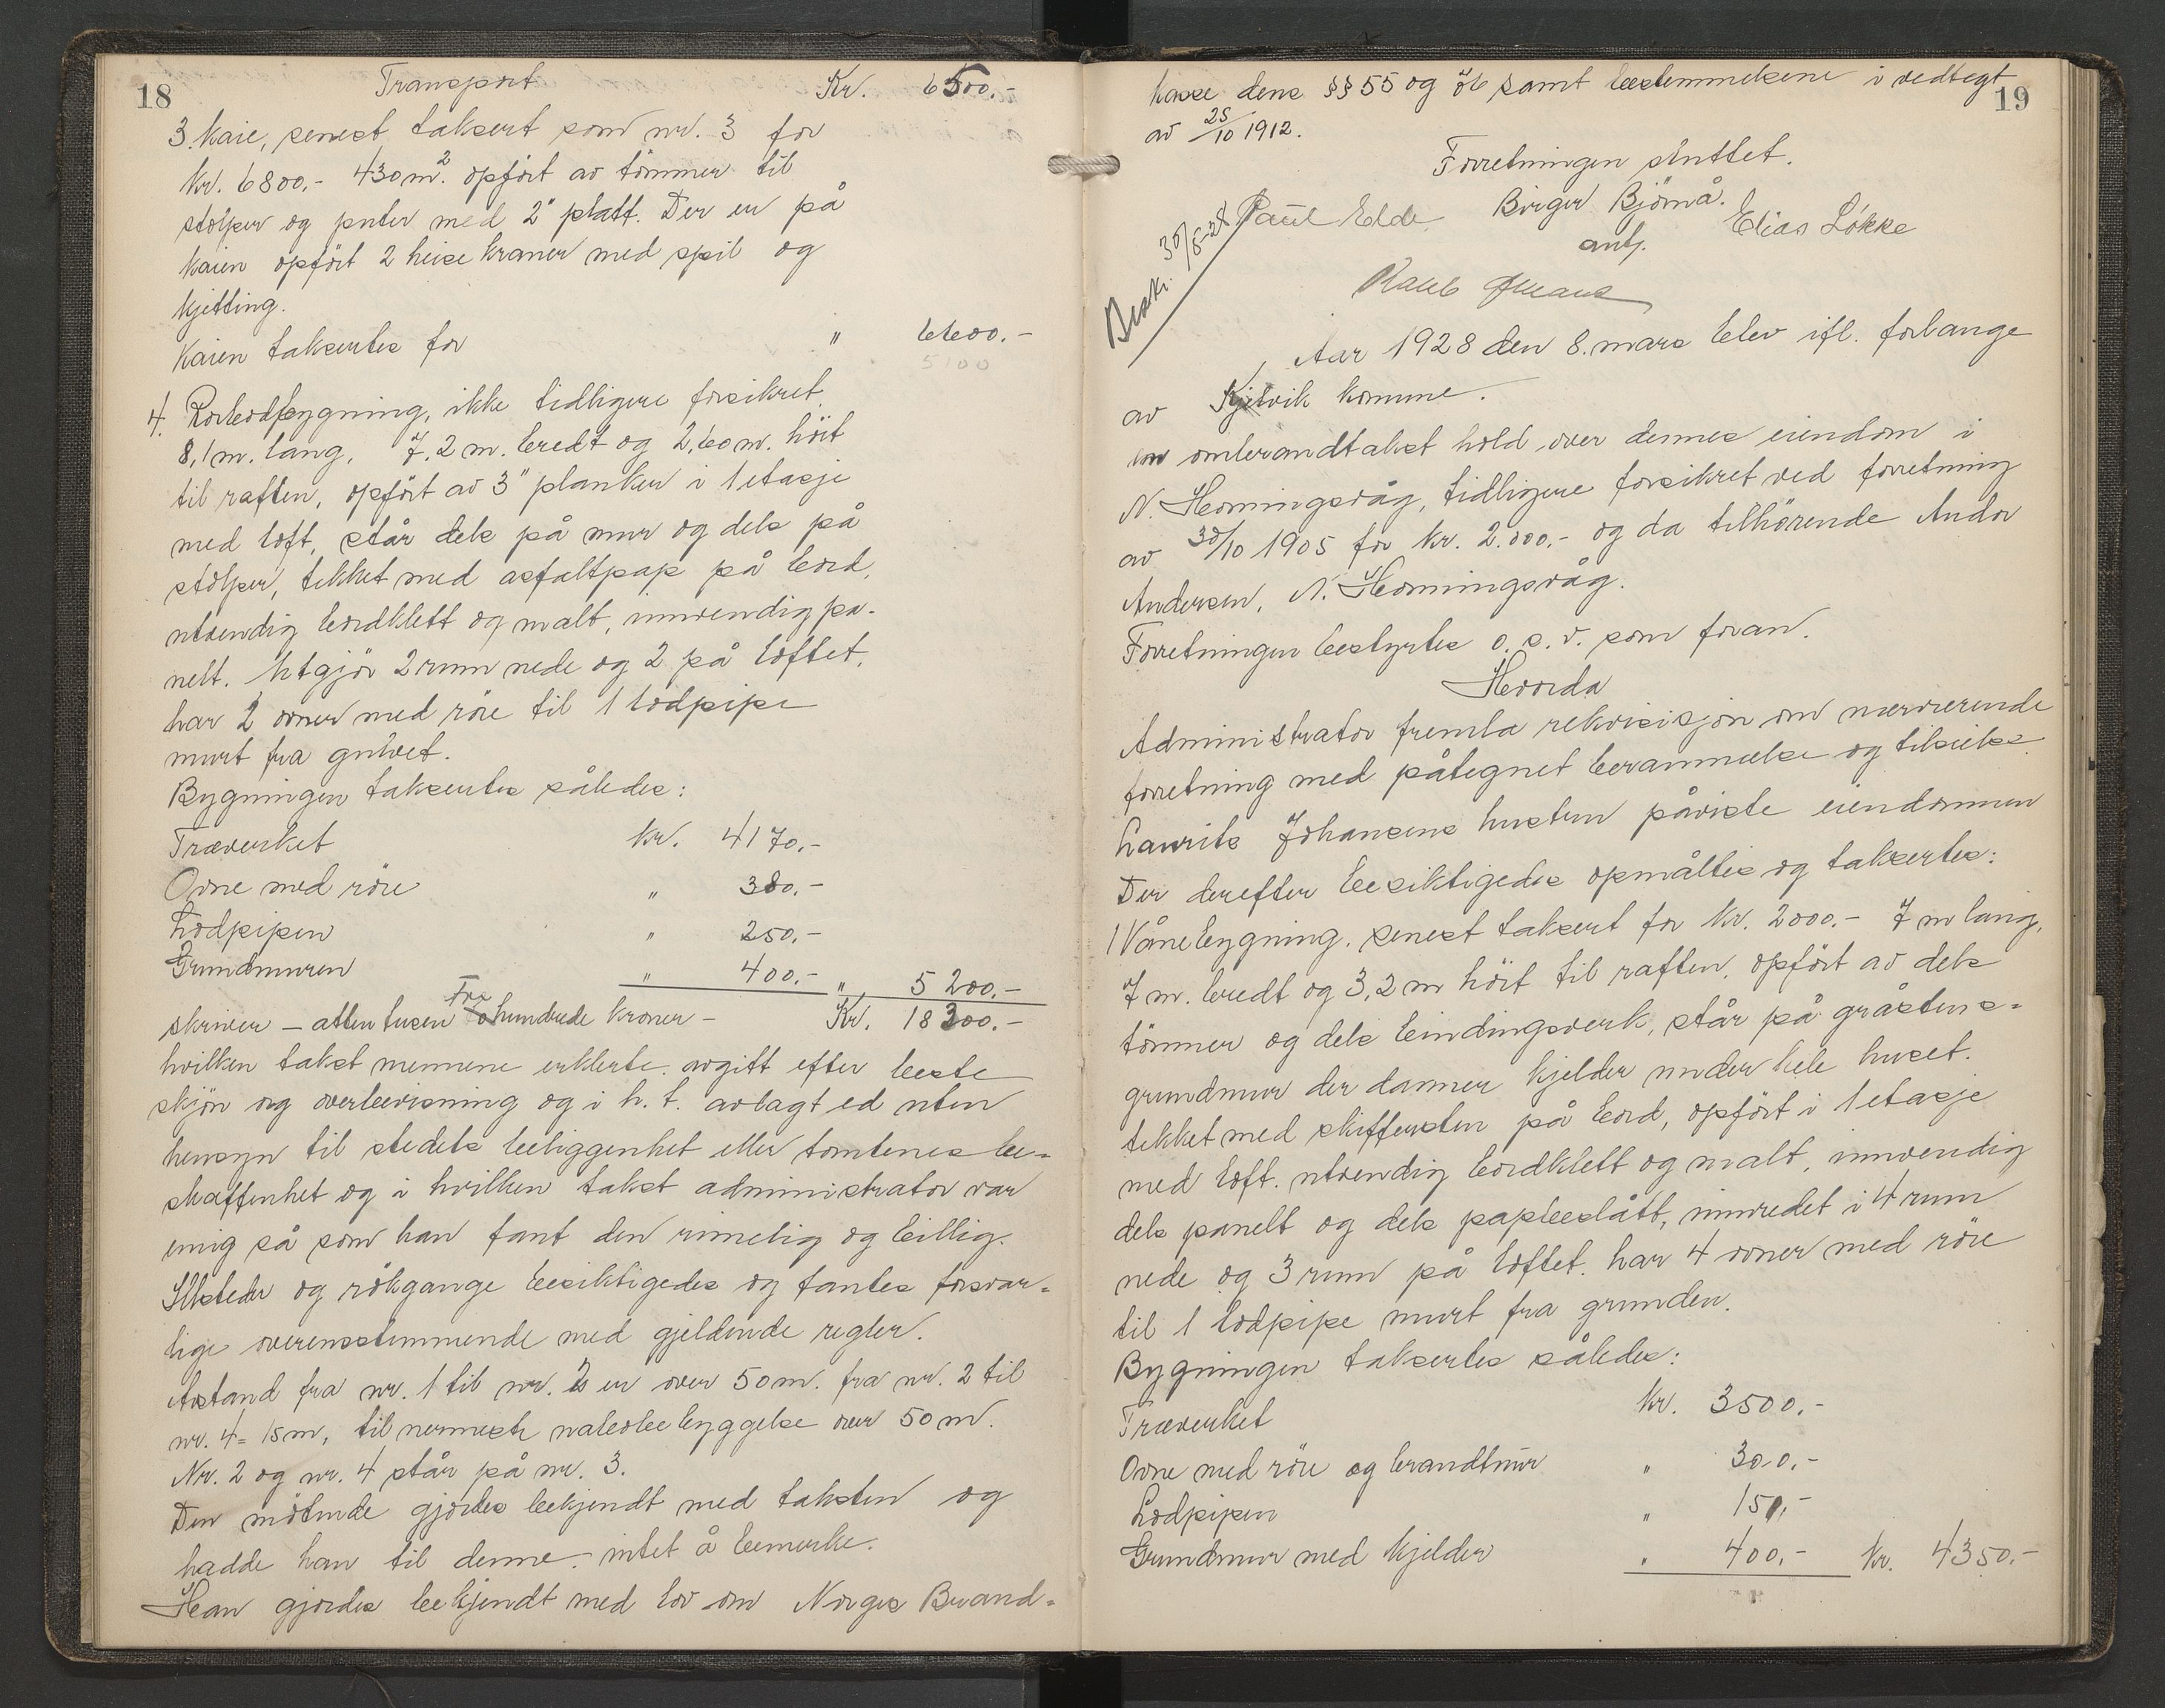 18
Transport Kr. 6500.-
3. Kaie, senest taksert som nr. 3 for
kr. 6800.- 430 m². opført av tømmer til
stolper og puter med 2" platt. Der er på
kaien opført 2 heise kraner med spil og
kjetting.
Kaien takseres for " 6600.-
5100
4. Rorbodbygning, ikke tidligere forsikret.
8,1 m. lang, 7,2 m. bredt og 2,60 m. höit
til raften, opfört av 3" planker i 1 etasje
med loft, står dels på mur og dels på
stolper, tekket med asfaltpap på bord,
utvendig bordklett og malt, innvendig pa-
nelt. Utgjör 2 rum nede og 2 på loftet,
har 2 ovner med röre til 1 lodpipe
murt fra gulvet.
Bygningen taksertes således:
Træverket kr. 4170.-
Ovne med röre " 380.-
Lodpipen " 250.-
Grundmuren " 400.- " 5200.-
skriver - atten tusen Tre hundrede kroner - Kr. 18300.-
hvilken takst mennene erklerte avgitt efter beste
skjön og overbevisning og i h. t. avlagt ed uten
hensyn til stedets beliggenhet eller tomtenes be-
skaffenhet og i hvilken takst administrator var
enig så som han fant den rimelig og billig.
Ildsteder og rökgange besiktigedes og fantes forsvar-
lige overensstemmende med gjeldende regler.
Avstand fra nr. 1 til nr. 2 er over 50 m. fra nr. 2 til
nr. 4 = 15 m, til nermeste nabobebyggelse over 50 m.
Nr. 2 og nr. 4 står på nr. 3.
Den mötende gjordes bekjendt med taksten og
hadde han til denne intet å bemerke.
Han gjordes bekjendt med lov om Norges Brand-
19
kasse dens §§ 55 og 56 samt bestemmelsene i vedtegt
av 25/10 1912.
Forretningen sluttet.
Paul Elde. Birger Bjömå. Elias Lökke
antj.
Beskr. 30/5-28
Aar 1928 den 8. mars blev ifl. forlange
av Kjelvik komune.
en ombrandtakst hold over dennes eiendom i
N. Honningsvåg, tidligere forsikret ved forretning
av 30/10 1905 for kr. 2.000.- og da tilhörende Andor
Andersen, N. Honningsvåg.
Forretningen bestyrtes o. s. v. som foran.
Hvorda
Administrator fremla rekvisisjon om nærværende
forretning med påtegnet berammelse og tilsielse.
Laurits Johansens hustru påviste eiendommen
Der derefter besiktigedes opmåltes og taksertes:
1 Vånebygning. senest taksert for kr. 2000.- 7 m lang,
7 m. bredt og 3,2 m höit til raften, opfört av dels
tömmer og dels bindingsverk, står på gråstens-
grundmur der danner kjelder under hele huset.
tekket med skiffersten på bord, opfört i 1 etasje
med loft. utvendig bordklett og malt, innvendig
dels panelt og dels papbeslått, innredet i 4 rum
nede og 3 rum på loftet. har 4 ovner med röre
til 1 lodpipe murt fra grunden.
Bygningen taksertes således:
Træverket kr. 3500.-
Ovne med röre og brandmur " 300.-
Lodpipen " 150,-
Grundmur med kjelder " 400.- Kr. 4350.-